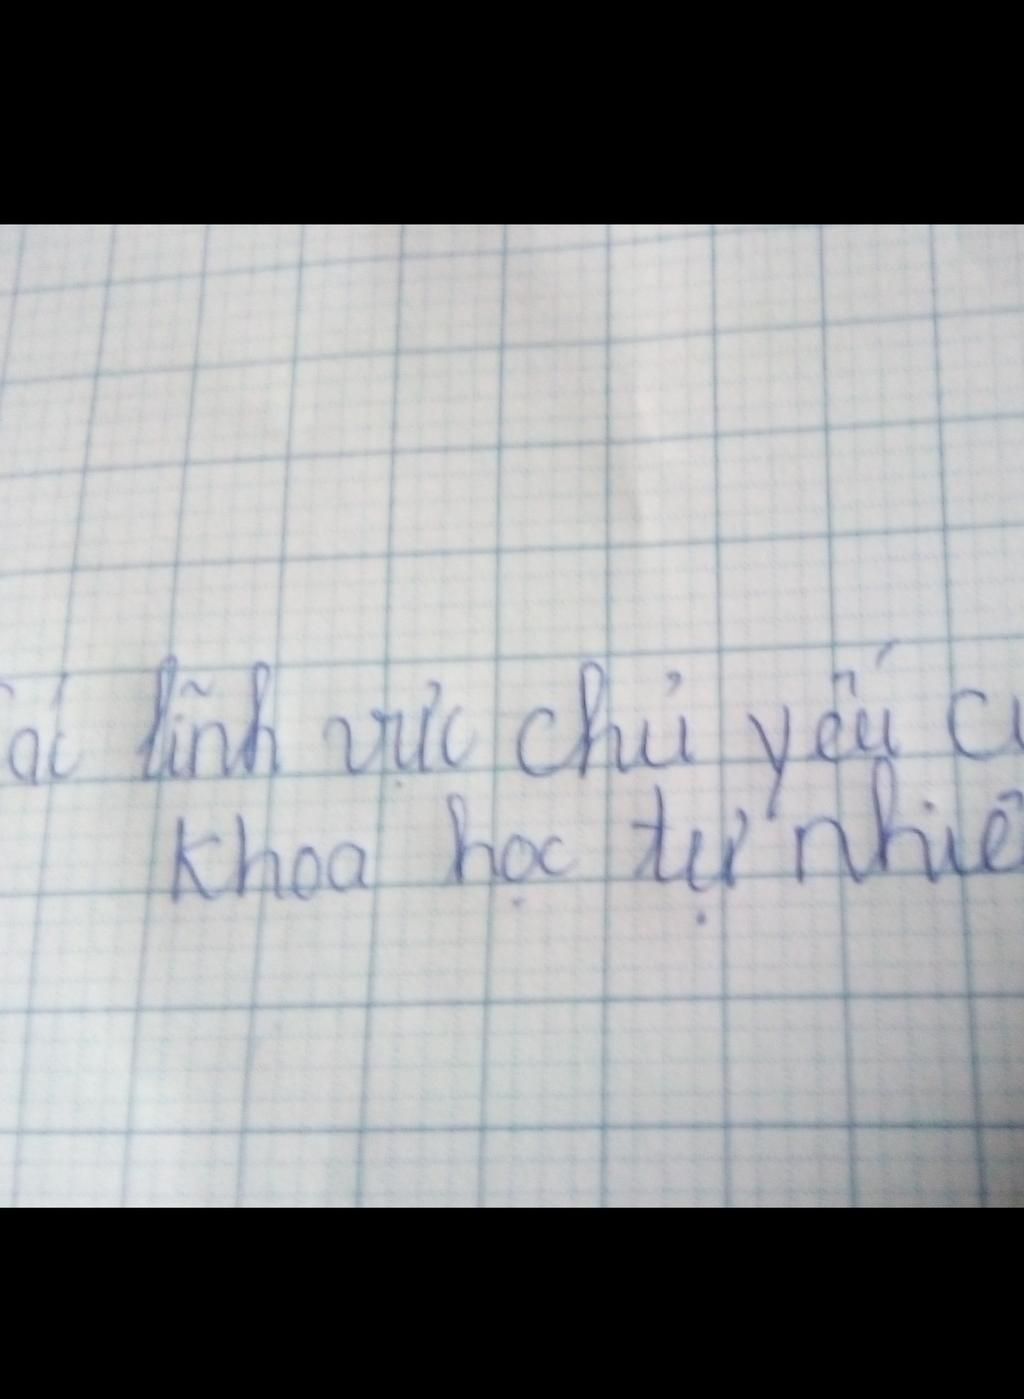 các lĩnh vực chủ yếu c
khoa học tự nhiê